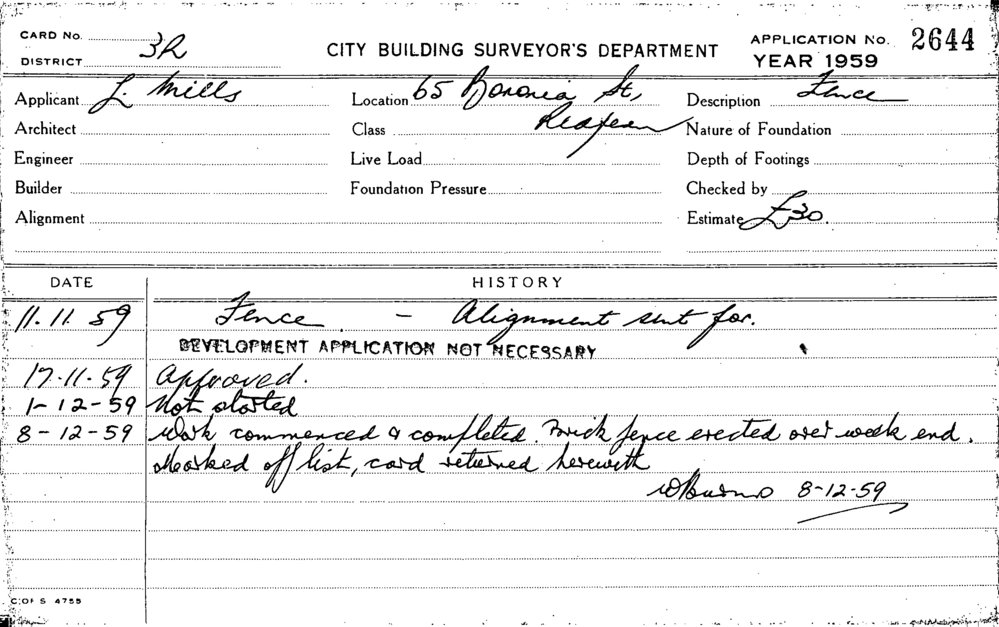 CARD No.
DISTRICT 3R
CITY BUILDING SURVEYOR'S DEPARTMENT
APPLICATION No. 2644
YEAR 1959
Applicant L. Mills
Location 65 Boronia St,
Redfern
Description Fence
Architect
Class
Nature of Foundation
Engineer
Live Load
Depth of Footings
Builder
Foundation Pressure
Checked by
Alignment
Estimate £30.
DATE
HISTORY
11.11.59 Fence - Alignment sent for.
DEVELOPMENT APPLICATION NOT NECESSARY
17-11-59 Approved.
1-12-59 Not started
8-12-59 Work commenced & completed. Brick fence erected over week end.
Marked off list, card returned herewith
WBurns 8-12-59
C. OF S 4755